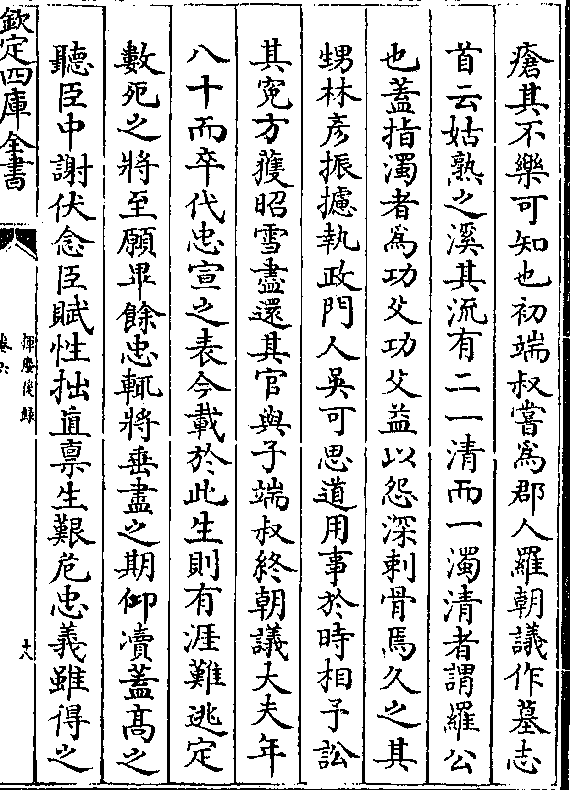 瘡其不樂可知也初端叔嘗為郡人羅朝議作墓志
首云姑熟之溪其流有二一清而一濁清者謂羅公
也蓋指濁者為功父功父益以怨深刺骨焉久之其
甥林彥振攄執政門人吳可思道用事於時相予訟
其寃方獲昭雪盡還其官與子端叔終朝議大夫年
八十而卒代忠宣之表今載於此生則有涯難逃定
數死之將至願畢餘忠輒將垂盡之期仰凟蓋髙之
聽臣中謝伏念臣賦性拙直禀生艱危忠義雖得之
欽定四庫全書
揮麈後録
卷六
十八